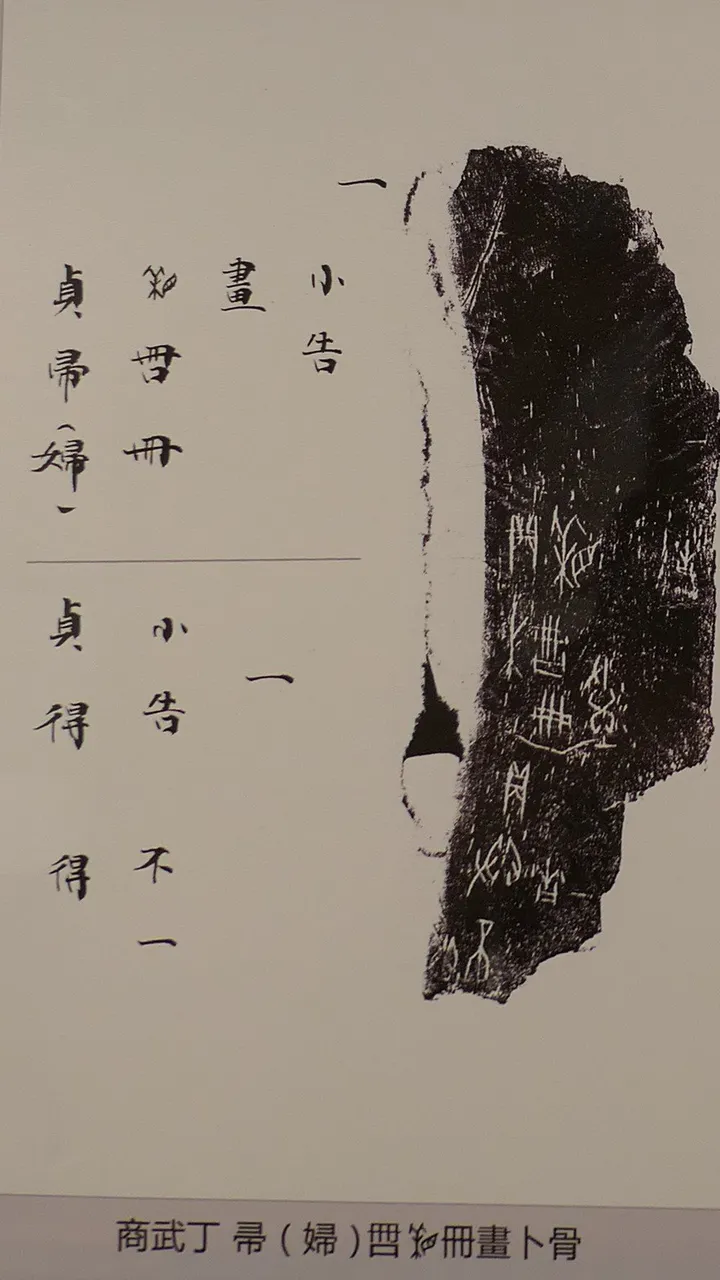 貞帚（婦）
冊
畫
小告
一
貞得 得
小告 不一
一
商武丁 帚（婦）冊畫卜骨